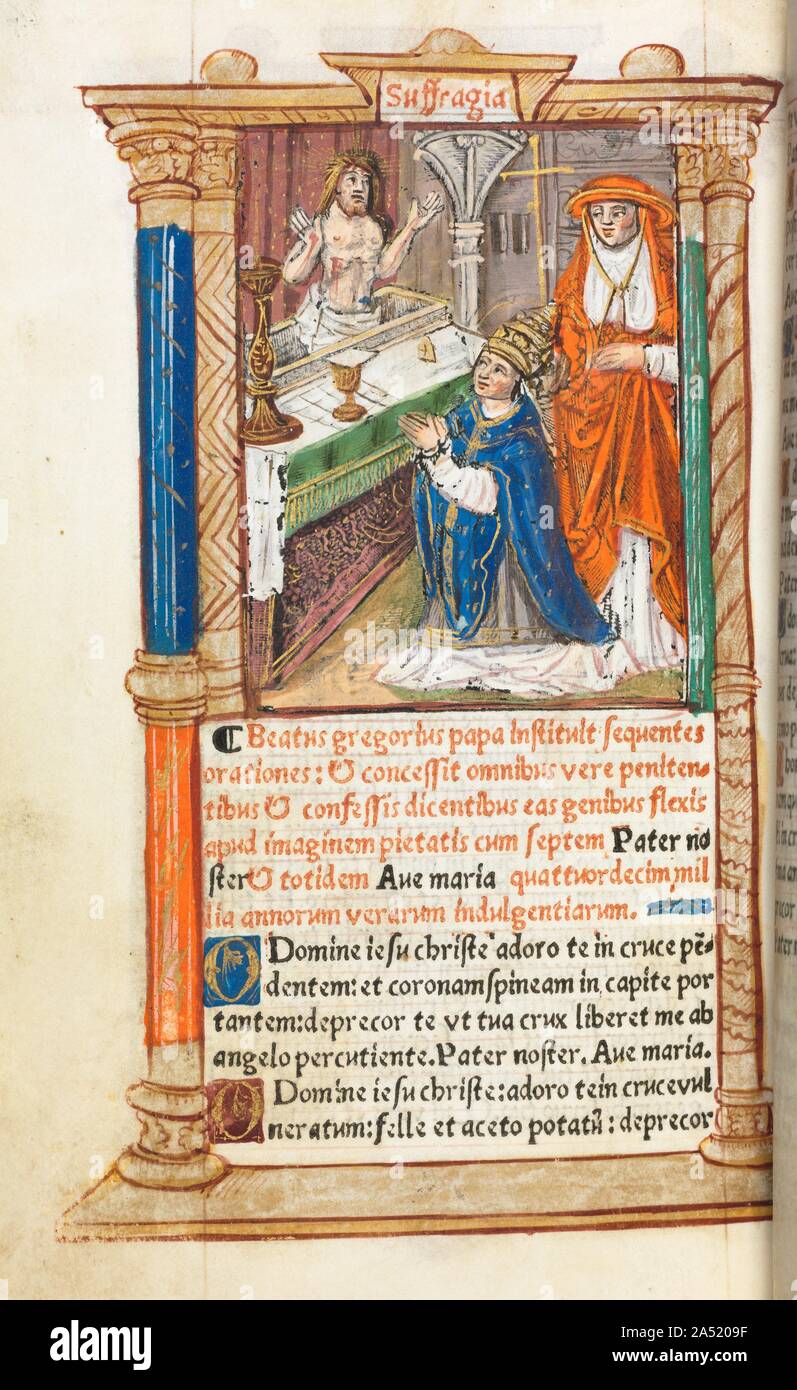 Suffragia
¶ Beatus gregorius papa instituit sequentes
orationes: & concessit omnibus vere peniten-
tibus & confessis dicentibus eas genibus flexis
apud imaginem pietatis cum septem Pater no
ster & totidem Ave maria quattuordecim mil
lia annorum verarum indulgentiarum.
O Domine iesu christe adoro te in cruce pē-
dentem: et coronam spineam in capite por
tantem: deprecor te vt tua crux liberet me ab
angelo percutiente. Pater noster. Ave maria.
O Domine iesu christe: adoro te in cruce vul
neratum: felle et aceto potatū: deprecor
alamy
alamy
Image ID: 2A5209F
www.alamy.com